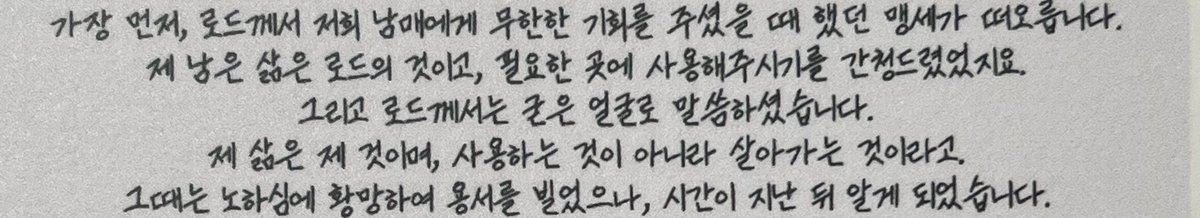 가장 먼저, 로드께서 저희 남매에게 무한한 기회를 주셨을 때 했던 맹세가 떠오릅니다.
제 남은 삶은 로드의 것이고, 필요한 곳에 사용해주시기를 간청드렸었지요.
그리고 로드께서는 굳은 얼굴로 말씀하셨습니다.
제 삶은 제 것이며, 사용하는 것이 아니라 살아가는 것이라고.
그때는 노하심에 황망하여 용서를 빌었으나, 시간이 지난 뒤 알게 되었습니다.